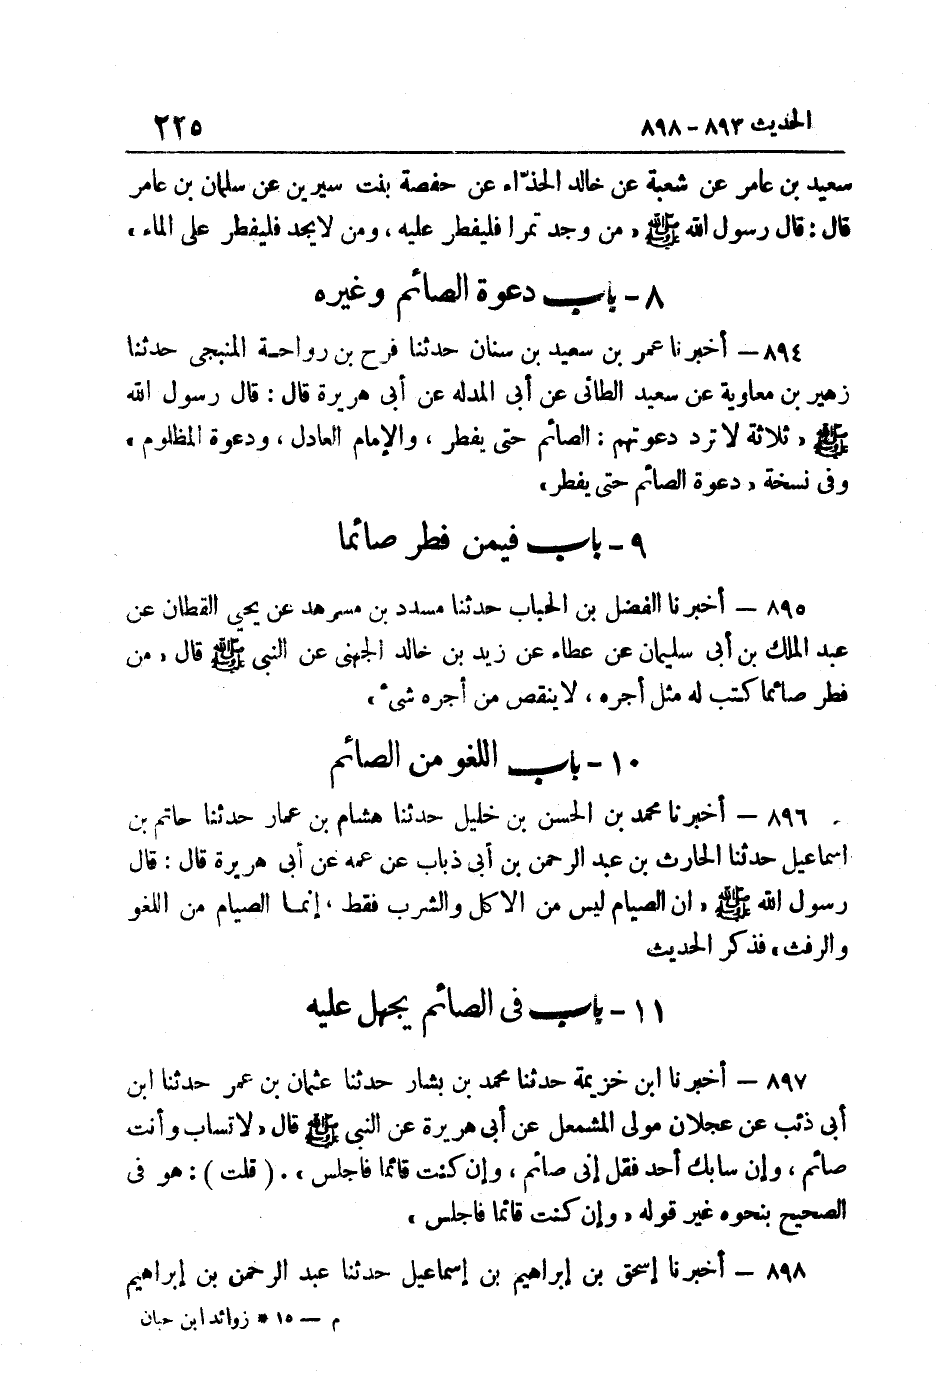 الحديث ٨٩٣ - ٨٩٨
٢٢٥
سعيد بن عامر عن شعبة عن خالد الحذّاء عن حفصة بنت سيرين عن سلمان بن عامر
قال : قال رسول الله ﷺ « من وجد تمرا فليفطر عليه ، ومن لايجد فليفطر على الماء »
٨ - باب دعوة الصائم وغيره
٨٩٤ – أخبرنا عمر بن سعيد بن سنان حدثنا فرح بن رواحة المنبجى حدثنا
زهير بن معاوية عن سعيد الطائى عن أبى المدله عن أبى هريرة قال : قال رسول الله
ﷺ « ثلاثة لا ترد دعوتهم : الصائم حتى يفطر ، والإمام العادل ، ودعوة المظلوم »
وفى نسخة « دعوة الصائم حتى يفطر »
٩ - باب فيمن فطر صائما
٨٩٥ – أخبرنا الفضل بن الحباب حدثنا مسدد بن مسرهد عن يحيى القطان عن
عبد الملك بن أبى سليمان عن عطاء عن زيد بن خالد الجهنى عن النبى ﷺ قال « من
فطر صائما كتب له مثل أجره ، لا ينقص من أجره شىء »
١٠ - باب اللغو من الصائم
٨٩٦ – أخبرنا محمد بن الحسن بن خليل حدثنا هشام بن عمار حدثنا حاتم بن
اسماعيل حدثنا الحارث بن عبد الرحمن بن أبى ذباب عن عمه عن أبى هريرة قال : قال
رسول الله ﷺ « ان الصيام ليس من الاكل والشرب فقط ، إنما الصيام من اللغو
والرفث » فذكر الحديث
١١ - باب فى الصائم يجهل عليه
٨٩٧ – أخبرنا ابن خزيمة حدثنا محمد بن بشار حدثنا عثمان بن عمر حدثنا ابن
أبى ذئب عن عجلان مولى المشمعل عن أبى هريرة عن النبى ﷺ قال « لا تساب وأنت
صائم ، وإن سابك أحد فقل إنى صائم ، وإن كنت قائما فاجلس » . ( قلت ) : هو فى
الصحيح بنحوه غير قوله « وإن كنت قائما فاجلس »
٨٩٨ – أخبرنا إسحق بن إبراهيم بن إسماعيل حدثنا عبد الرحمن بن إبراهيم
م – ١٥ * زوائد ابن حبان